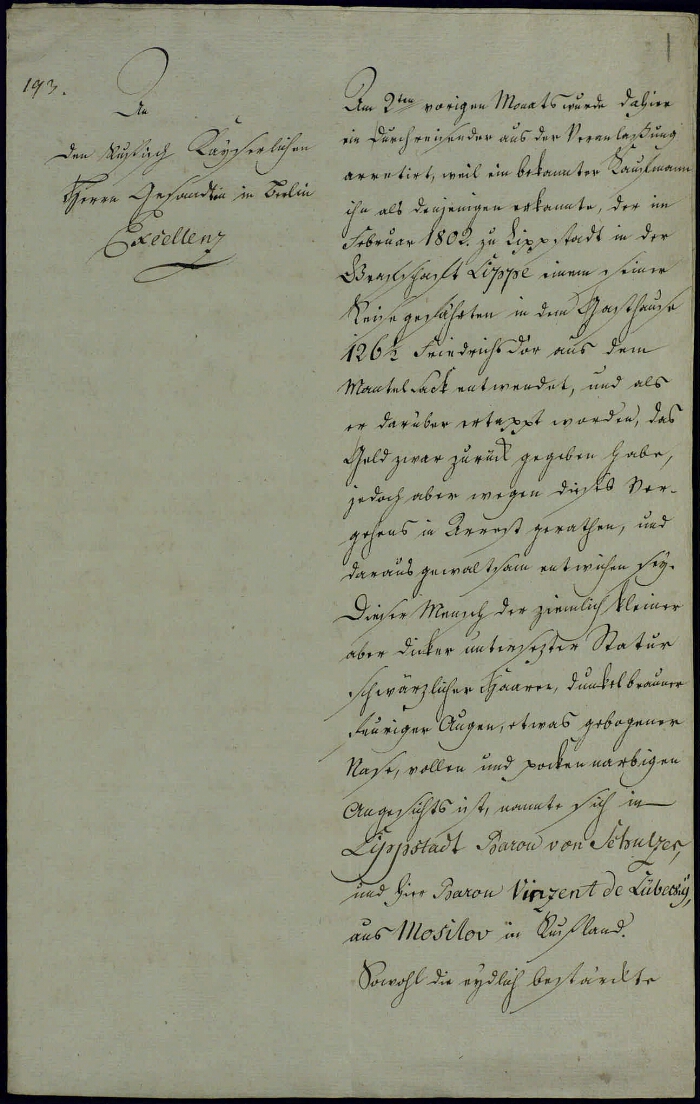 193.
1
An
den Rußisch Kayserlichen
Herrn Gesandten in Berlin
Excellenz
Am 2ten vorigen Monats wurde dahier
ein Durchreisender aus der Veranlaßung
arretirt, weil ein bekannter Kaufmann
ihn als denjenigen erkannte, der im
Februar 1802. zu Lippstadt in der
Grafschaft Lippe einem seiner
Reisegefährten in dem Gasthause
126½ Friedrichsd'or aus dem
Mantelsack entwendet, und als
er darüber ertappt worden, das
Geld zwar zurück gegeben habe,
jedoch aber wegen dieses Ver-
gehens in Arrest gerathen, und
daraus gewaltsam entwichen sey.
Dieser Mensch der ziemlich kleiner
aber dicker untersezter Statur
schwärzlicher Haare, dunkelbrauner
feuriger Augen, etwas gebogener
Nase, vollen und pockennarbigen
Angesichts ist, nannte sich in
Lippstadt Baron von Schulzer,
und hier Baron Vinzent de Lübecky,
aus Mosilov in Rußland.
Sowohl die eydlich bestärckte